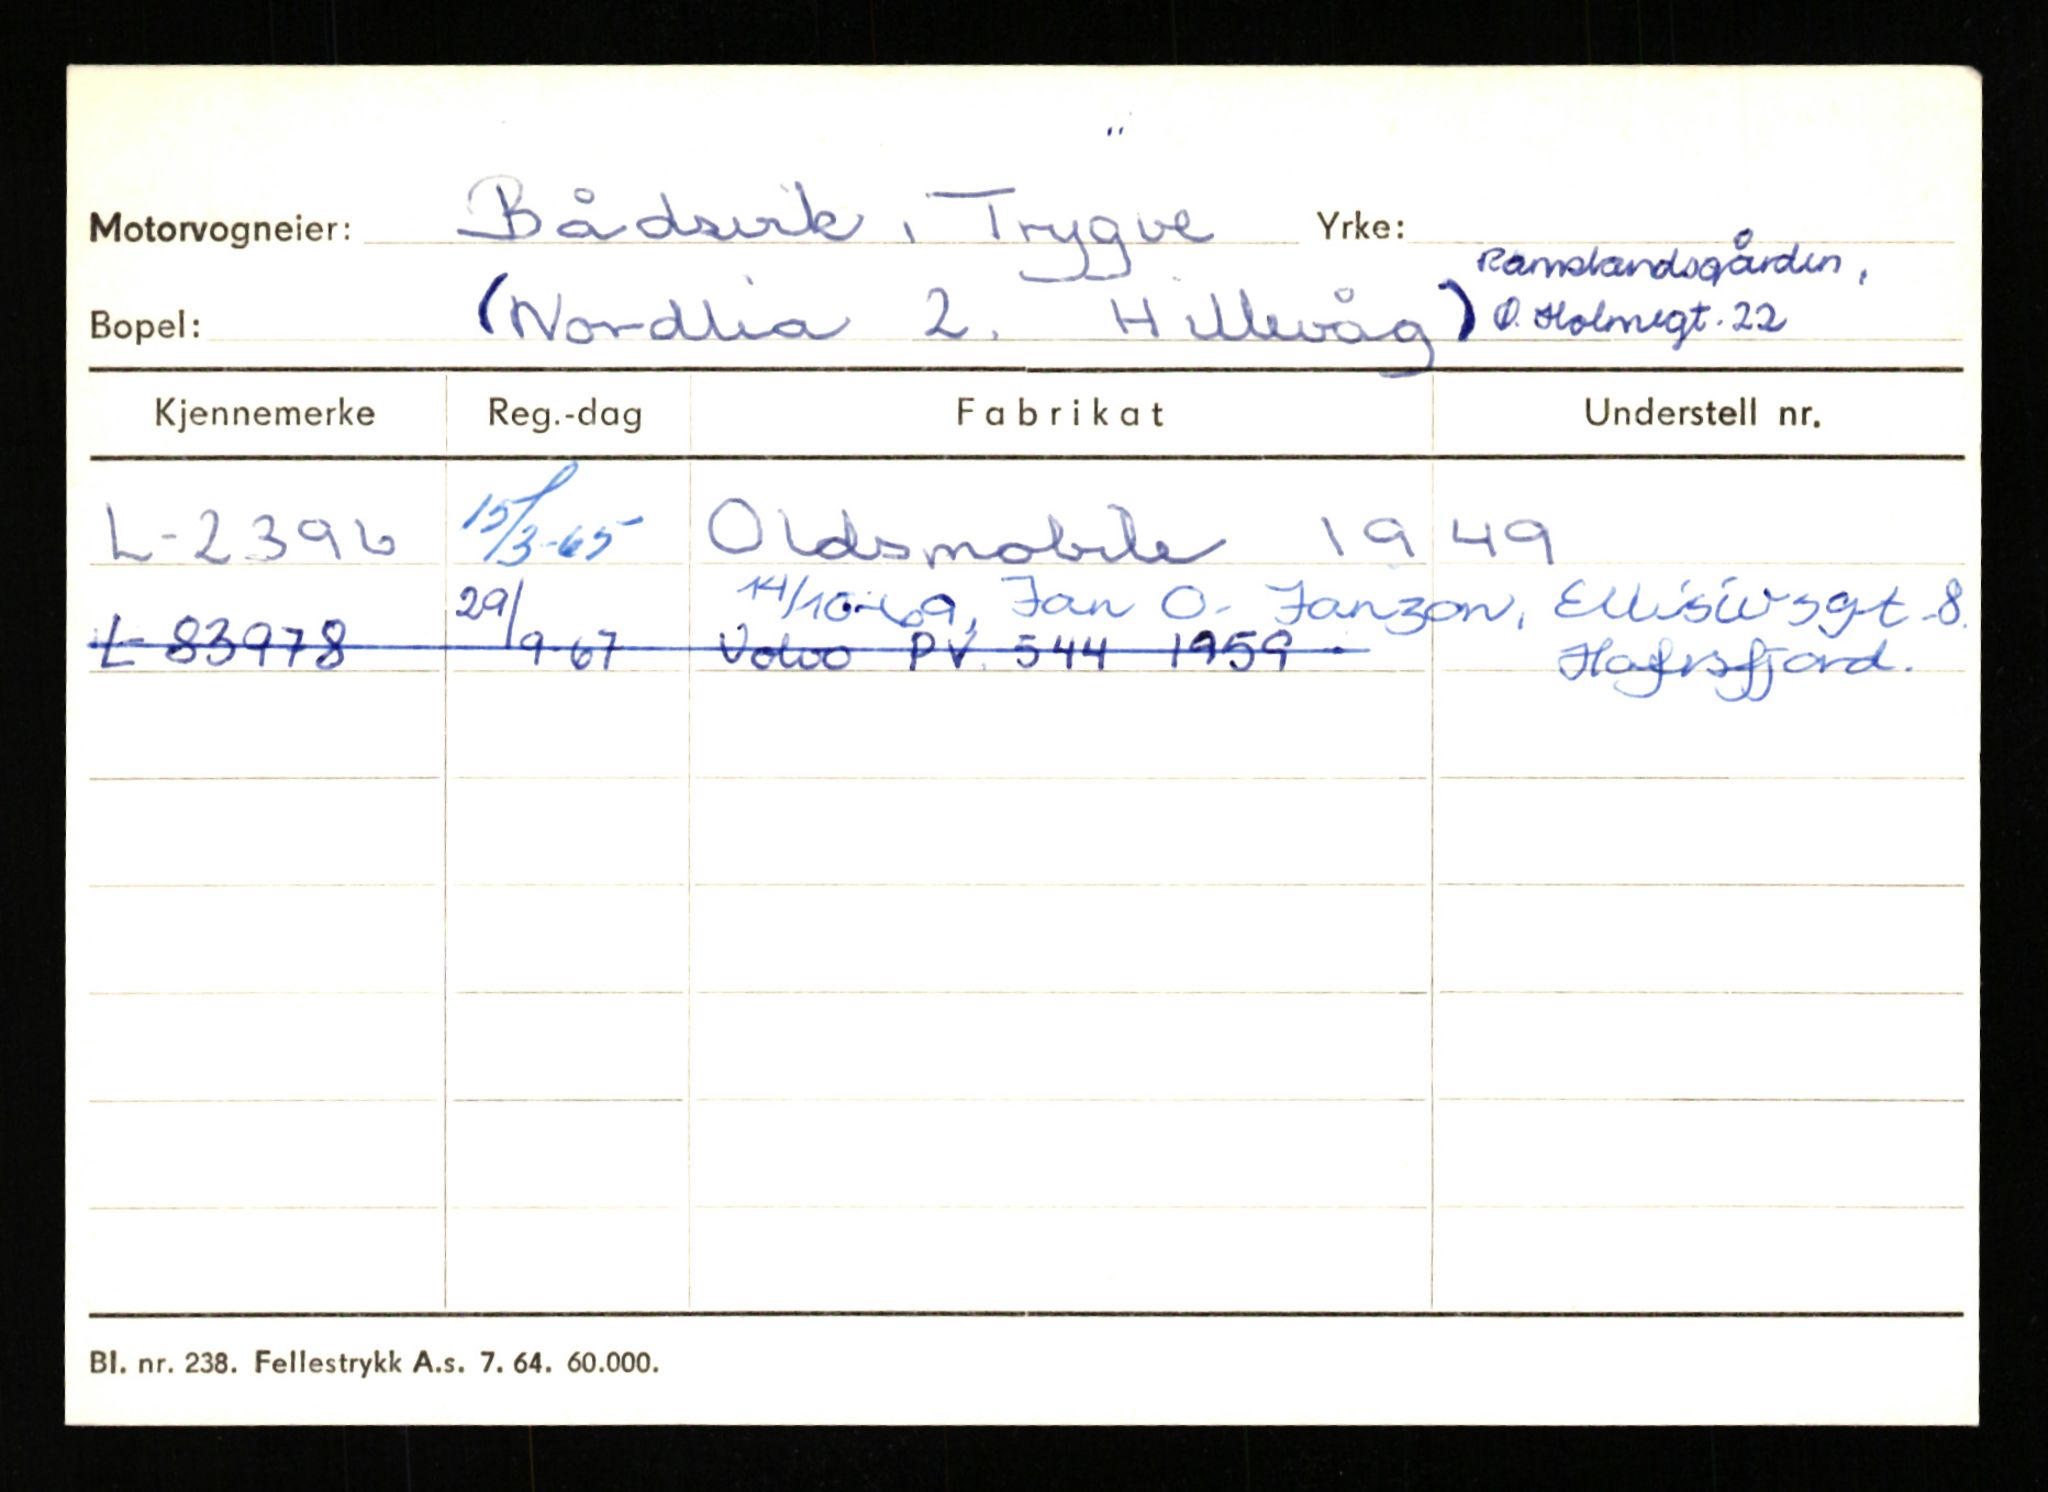 Motorvogneier: Bådsvik, Trygve Yrke:
Ramslandsgården,
Bopel: (Nordlia 2. Hillevåg) Ø. Holmegt. 22
Kjennemerke Reg.-dag Fabrikat Understell nr.
L-2396 15/3-65 Oldsmobile 1949
14/10-69, Jan O. Janzon, Ellisivsgt. 8.
L-83978 29/9-67 Volvo PV. 544 1959 Hafrsfjord.
Bl. nr. 238. Fellestrykk A.s. 7. 64. 60.000.